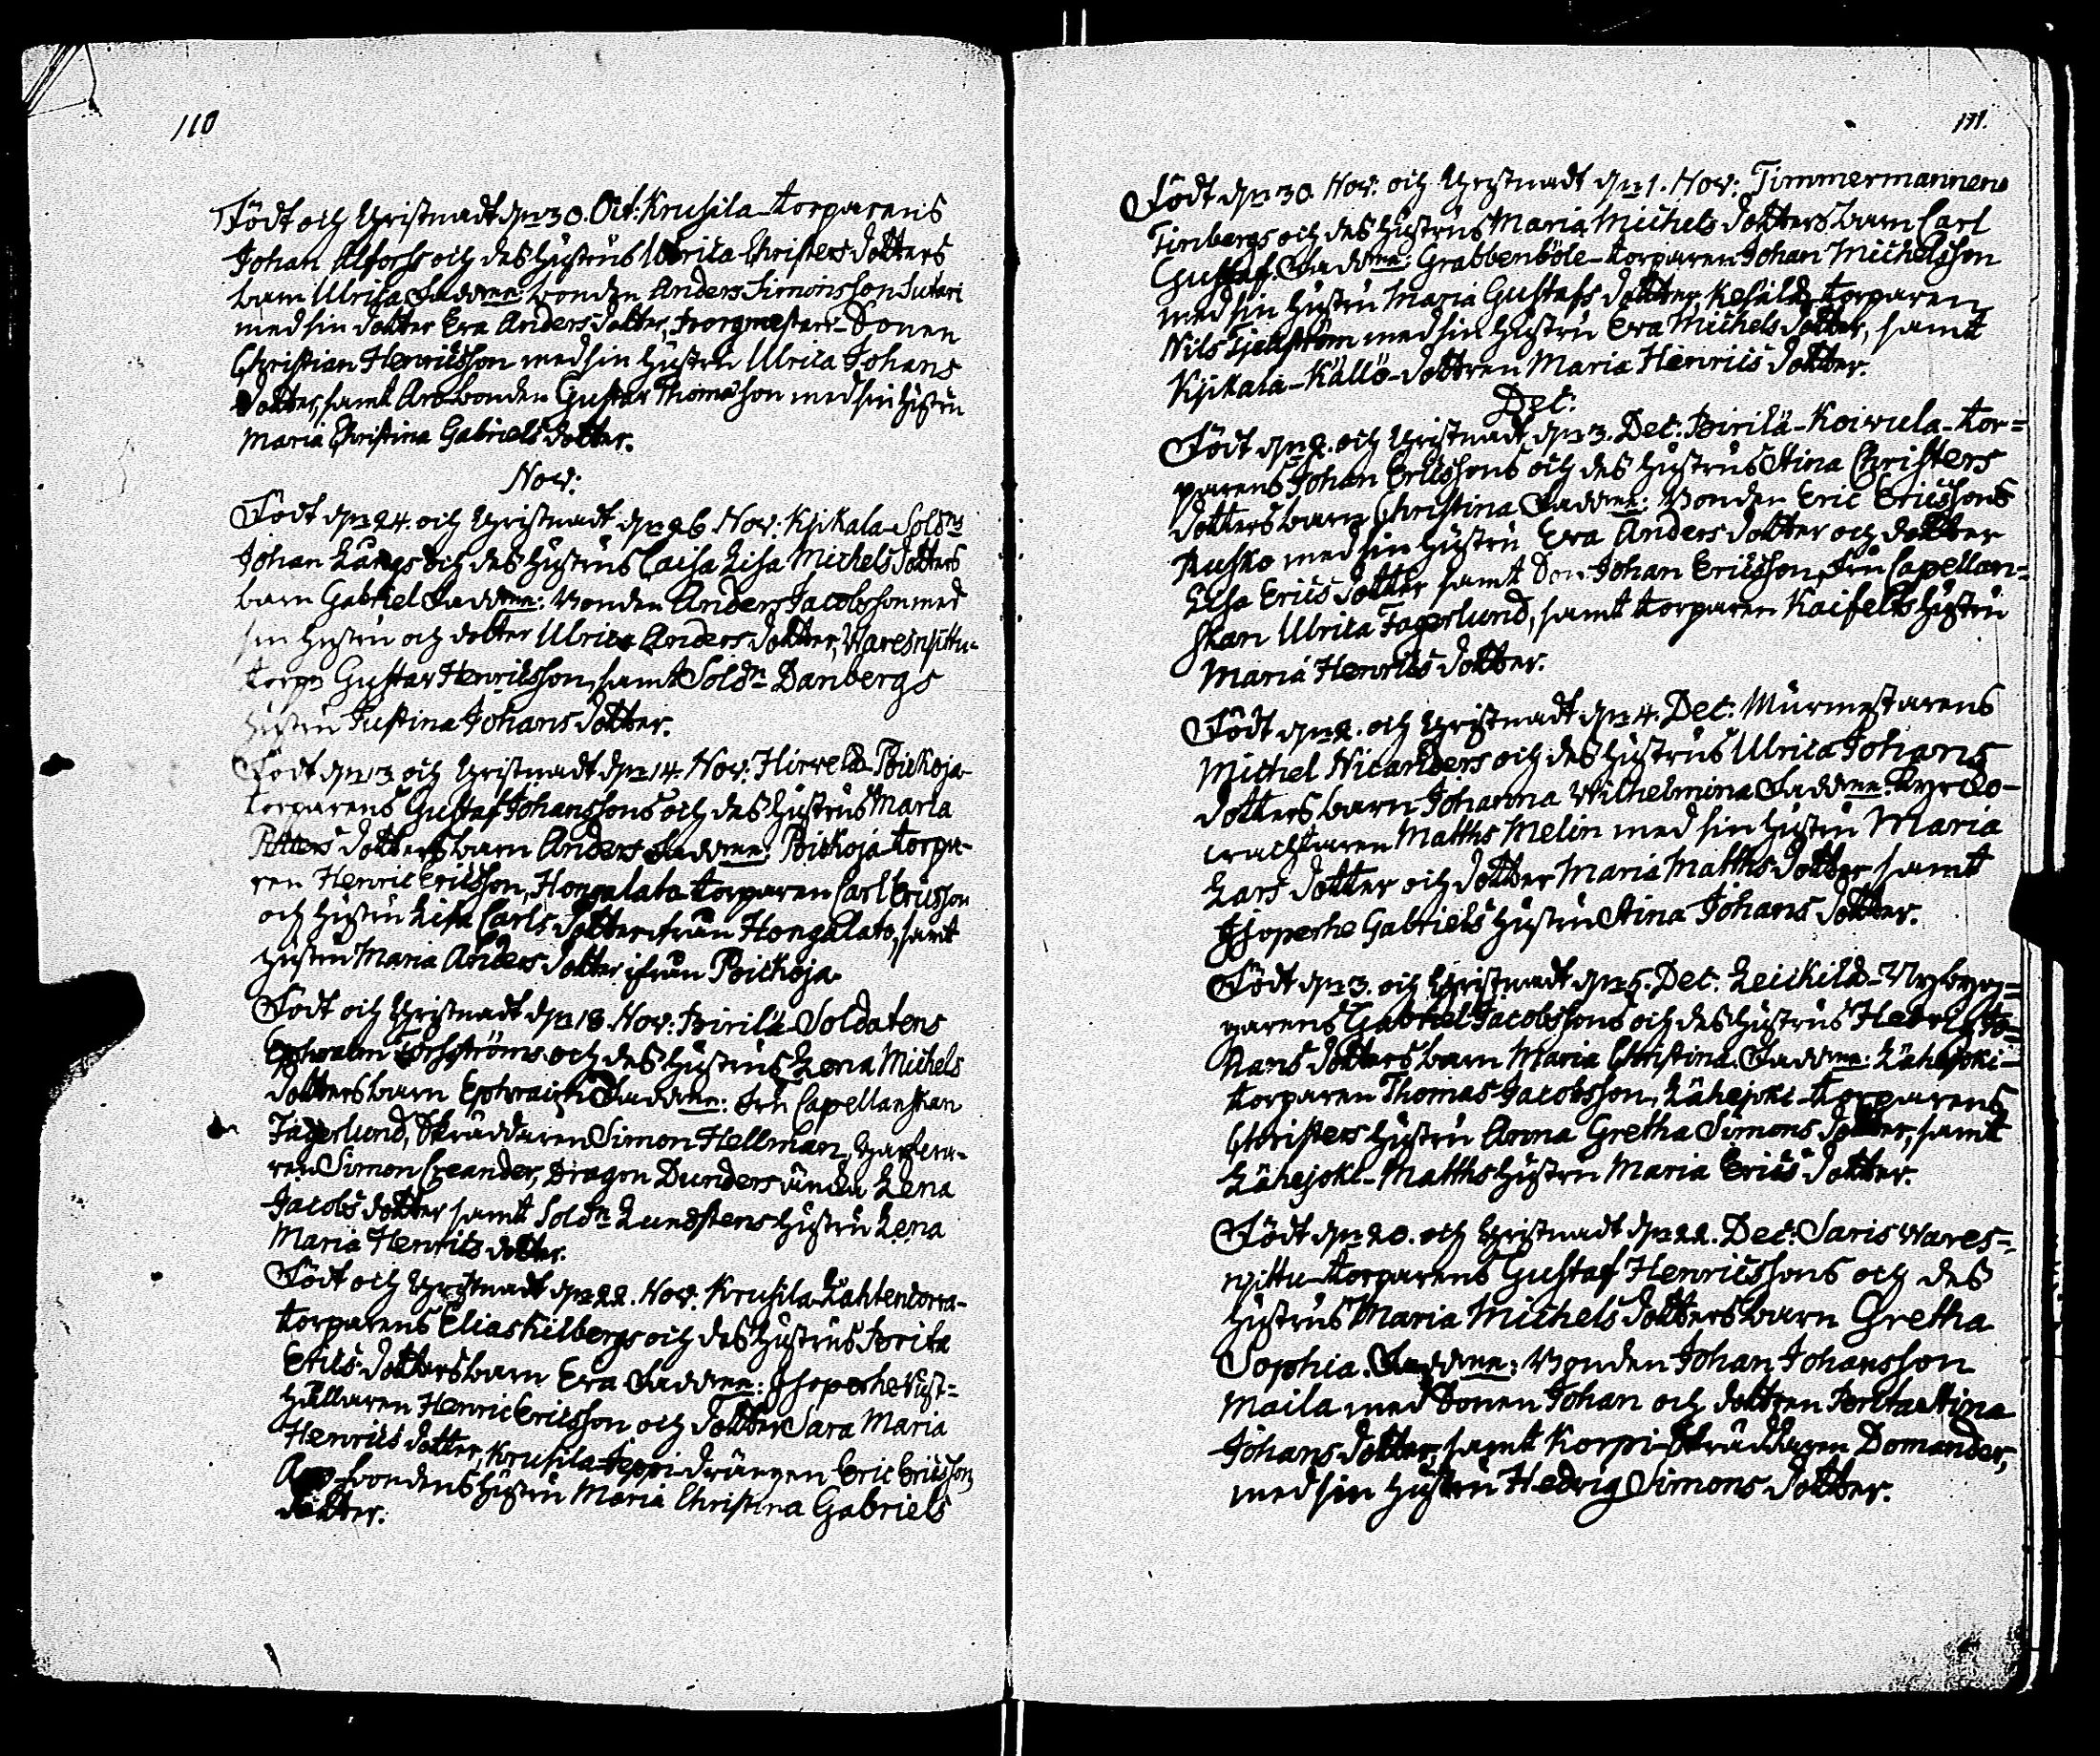 110
Födt och Christnadt d. 30. Oct: Krusila-torparens
Johan Alforss och des hustrus Ulrica Christersdotters
barn Ulrica Faddrar: bonden Anders Simonsson Sutari
med sin dotter Eva Anders dotter, Sonen
Christian Henricsson med sin hustru Ulrica Johans
dotter, samt bonden Gustav Thomsson med sin hustru
Maria Christina Gabriels dotter.
Nov:
Födt d. 24. och Christnadt d. 26 Nov: Kjikala-Sold.n
Johan Långs och des hustrus Caisa Lisa Michels dotters
barn Gabriel Faddrar: Bonden Anders Jacobsson med
sin hustru och dotter Ulrica Anders dotter, Waresnittu-
torp. Gustav Henricsson, samt Sold.n Danbergs
hustru Justina Johans dotter.
Födt d. 13 och Christnadt d. 14. Nov: Hirvelä-Poickoja-
torparens Gustaf Johanssons och des hustrus Maria
Petters dotters barn Anders Faddrar: Poickoja-torpa-
ren Henric Ericsson, Hongalato torparen Carl Ericsson
och hustru Lisa Carls dotter ifrån Hongalato, samt
hustru Maria Anders dotter ifrån Poickoja.
Födt och Christnadt d. 18. Nov: Pirilä-Soldatens
Ephraim Forsströms och des hustrus Lena Michels
dotters barn Ephraim Faddrar: Fru Capellanskan
Fagerlund, Skräddaren Simon Hellman,
ren Simon Creander, Dragon Dunders änka Lena
Jacobs dotter samt Sold.n Lundstens hustru Lena
Maria Henrics dotter.
Födt och Christnadt d. 22. Nov. Krusila-Lahtencorva-
torparens Elias Kilbergs och des hustrus Brita
Erics dotters barn Eva Faddrar: Isoperhe Rust-
hållaren Henric Ericsson och dotter Sara Maria
Henrics dotter, Krusila-Seppi-drängen Eric Ericsson,
bondens hustru Maria Christina Gabriels
dotter.
111.
Födt d. 30. Nov. och Christnadt d. 1. Nov: Timmermannens
Timbergs och des hustrus Maria Michels dotters barn Carl
Gustaf. Faddrar: Grabbenböle-torparen Johan Michelsson
med sin hustru Maria Gustafs dotter, torparen
Nils med sin hustru Eva Michels dotter, samt
Kjikala-Källö-dottren Maria Henrics dotter.
Dec:
Födt d. 2. och Christnadt d. 3. Dec: Pirilä-Koivula-tor=
parens Johan Ericssons och des hustrus Stina Christers
dotters barn Christina Faddrar: Bonden Eric Ericssons
Rusko med sin hustru Eva Anders dotter och dotter
Lisa Erics dotter samt Son Johan Ericsson, Fru Capellan=
skan Ulrica Fagerlund, samt torparen Kaifelts hustru
Maria Henrics dotter.
Födt d. 2. och Christnadt d. 4. Dec: Murmestarens
Michel Nicanders och des hustrus Ulrica Johans
dotters barn Johanna Wilhelmina Faddrar: Kyrko-
wachtaren Matths Melin med sin hustru Maria
Lars dotter och dotter Maria Matths dotter samt
Isoperhe Gabriels hustru Stina Johans dotter.
Födt d. 3. och Christnadt d. 5. Dec. Leickilä-Nybyg=
garens Gabriel Jacobssons och des hustrus Hedvig Jo=
hans dotters barn Maria Christina. Faddrar: Lähejoki-
torparen Thomas Jacobsson, Lähejoki-torparens
Christers hustru Anna Gretha Simons dotter, samt
Lähejoki-Matths hustru Maria Erics dotter.
Födt d. 20. och Christnadt d. 22. Dec: Saris Wares=
nittu-torparens Gustaf Henricssons och des
hustrus Maria Michels dotters barn Gretha
Sophia. Faddrar: Bonden Johan Johansson
Maila med Sonen Johan och dottren Brita Stina
Johans dotter, samt Korpi-Skräddaren Domander,
med sin hustru Hedvig Simons dotter.